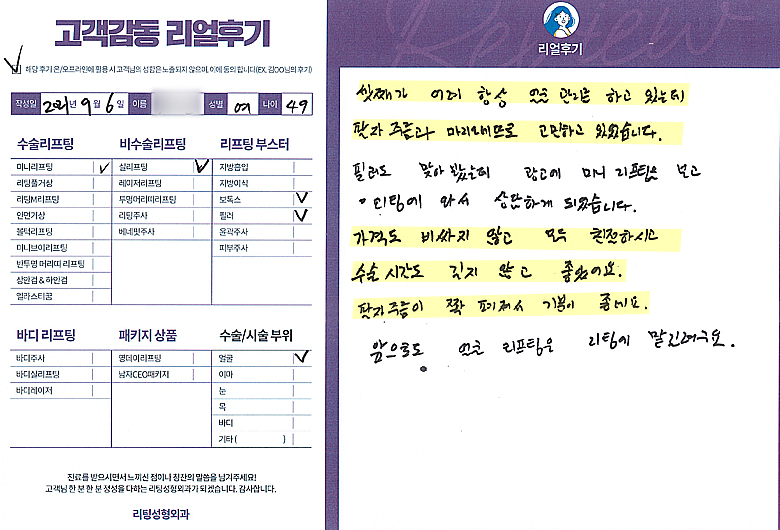 고객감동 리얼후기
해당 후기 온/오프라인에 활용 시 고객님의 성함은 노출되지 않으며, 이에 동의 합니다(EX. 김OO님의 후기)
작성일 2021년 9월 6일 이름 성별 여 나이 49
수술리프팅 비수술리프팅 리프팅 부스터
미니리프팅 실리프팅 지방흡입
리팅풀거상 레이저리프팅 지방이식
리팅M리프팅 투명머리띠리프팅 보톡스
안면거상 리팅주사 필러
볼턱리프팅 베네핏주사 윤곽주사
미니브이리프팅 피부주사
반투명 머리띠 리프팅
상안검 & 하안검
엘라스티꿈
바디 리프팅 패키지 상품 수술/시술 부위
바디주사 영데이리프팅 얼굴
바디실리프팅 남자CEO패키지 이마
바디레이저 눈
목
바디
기타 ( )
진료를 받으시면서 느끼신 점이나 칭찬의 말씀을 남겨주세요!
고객님 한 분 한 분 정성을 다하는 리팅성형외과가 되겠습니다. 감사합니다.
리팅성형외과
Review
리얼후기
이며 항상 얼굴 관리를 하고 있는데
팔자 주름과 마리오네뜨로 고민하고 있었습니다.
필러도 맞아 봤는데 광고에 미니 리프팅을 보고
리팅에 와서 상담하게 되었습니다.
가격도 비싸지 않고 모두 친절하시고
수술 시간도 길지 않고 좋았어요.
팔자주름이 쫙 펴져서 기분이 좋네요.
앞으로도 얼굴 리프팅은 리팅에 맡길려구요.